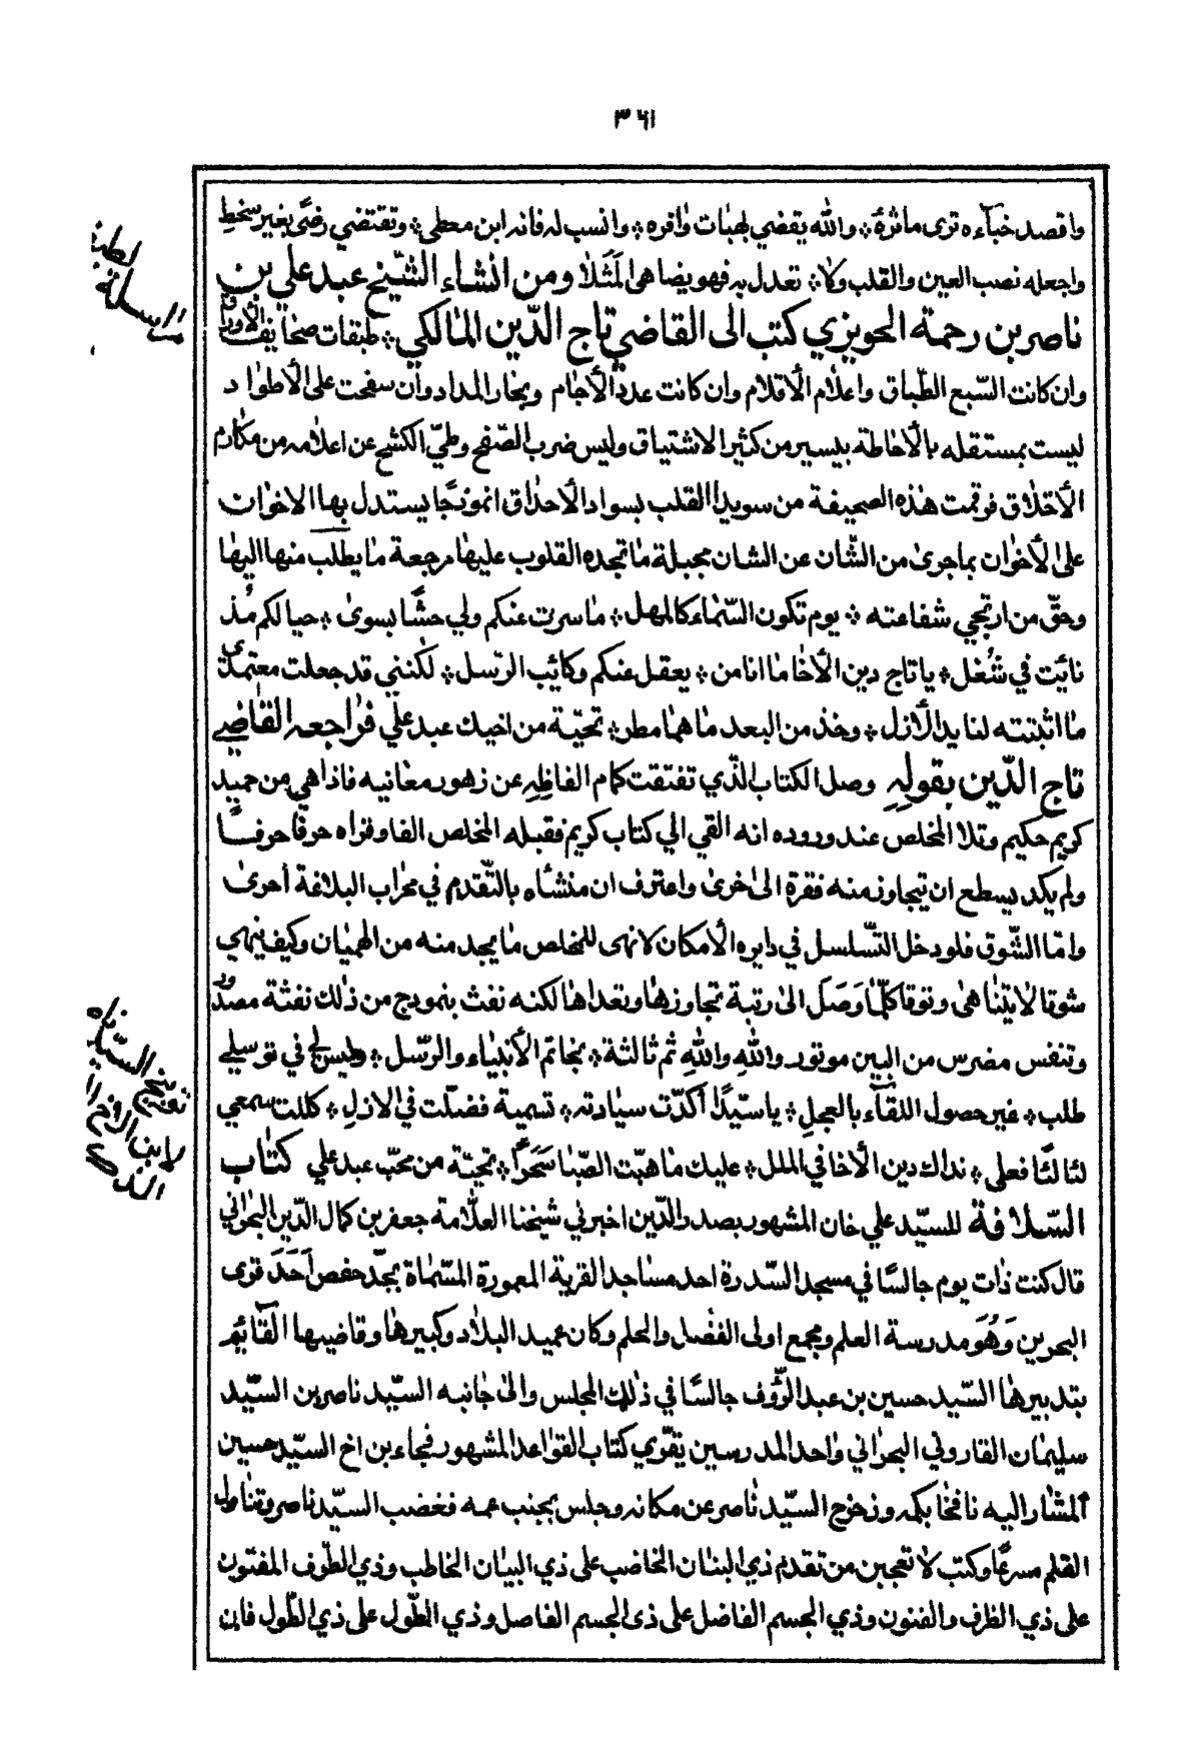 ٣٦١
واقصد خبآءه ترى ماثرهٔ ؞ والله يقضي لهبات وافره ؞ وانسب له فانه ابن معطي ؞ وتقتضي رضًى بغير سخط
واجعله نصب العين والقلب وكا ؞ تعدل به فهو يضاهى المَثَلا ومن انشاء الشيخ عبد علي بن
ناصر بن رحمة الحويزي كتب الى القاضي تاج الدّين المالكي ؞ طبقات صحايف الاوراق
وان كانت السّبع الطّباق واعلام الاقلام وان كانت عدد الأجام وبحار المداد وان سفحت على الاطواد
ليست بمستقله بالاحاطة بيسير من كثير الاشتياق وليس ضرب الصّفح وطيّ الكشح عن اعلامه من مكارم
الاخلاق فرقمت هذه الصحيفة من سويدا القلب بسواد الأحداق انموذجًا يستدل بها الاخوان
على الأخوان بما جرى من الشّان عن الشان مجبلة ما تجده القلوب عليها مرجعة ما يطلب منها اليها
وحقّ من ارتجي شفاعته ؞ يوم تكون السّماء كالمهل ؞ ما سرت عنكم ولي حشًا بسوى ؞ حيالكم مُذ
نائيت في شُغل ؞ يا تاج دين الأخا ما انا من ؞ يعقل عنكم وكائب الرسل ؞ لكنني قد جعلت معتمدى
ما اثبتته لنا يد الأزل ؞ وخذ من البعد ما هما مطر ؞ تحيّة من اخيك عبد علّي فراجعه القاضي
تاج الدّين بقولهِ وصل الكتاب الّذي تفتقت كمام الفاظهِ عن زهور معانيه فاذا هي من حميد
كريم حكيم وتلا المخلص عند وروده انه القي الي كتاب كريم فقبله المخلص الفا وقراه حرفًا حرفًا
ولم يكد يسطع ان يتجاوز منه فقرة الى اخرى واعترف ان منشأه بالتّقدم في محراب البلاغة أحرى
وامّا الشّوق فلو دخل التّسلسل في دايره الأمكان لانهى للمخلص ما يجد منه من الهميان وكيف ينهي
شوقا لا يتناهى وتوقا كلّما وَصَلَ الى رتبة تجاوزها وتعداها لكنه نفث بنموذج من ذلك نفثة مصدور
وتنفس مضرس من البين موتور واللهِ واللهِ ثم ثالثة ؞ بخاتم الأنبياء والرّسل ؞ وليس لي في توسلي
طلب ؞ غير حصول اللقآء بالعجلِ ؞ يا سيّدًا أكدّت سيادته ؞ تسمية فضلت في الازلِ ؞ كللت سمعي
لئالئًا فعلى ؞ نداك دين الأخا في الملل ؞ عليك ما هبّت الصّبا سَحَرًا ؞ تحيّة من محبّ عبد علي كتاب
السّلافة للسيّد علي خان المشهور بصدر الدّين اخبرني شيخنا العلّامة جعفر بن كمال الدّين البحراني
قال كنت ذات يوم جالسًا في مسجد السّدرة احد مساجد القرية المعمورة المسّماة بجدّ حفص اَحَدَ قرى
البحرين وَهُوَ مدرسة العلم ومجمع اولى الفضل والحلم وكان عميد البلاد وكبيرها وقاضيها القآئم
بتدبيرها السّيد حسين بن عبد الرّؤف جالسًا في ذلك المجلس والى جانبه السيّد ناصر بن السيّد
سليمان القاروني البحراني واحد المدرسين يقرّي كتاب القواعد المشهور فجاء بن اخ السيّد حسين
المشار اليه نافخًا بكمه وزخزح السيّد ناصر عن مكانه وجلس بجنب عمه فغضب السيّد ناصر وتناول
القلم مسرعًا وكتب لا تعجبن من تقدم ذي البنان الخاضب على ذي البيان الخاطب وذي الطّوف المفتون
على ذي الظرف والفنون وذي الجسم الفاضل على ذى الجسم الفاصل وذي الطّول على ذي الطّول فان